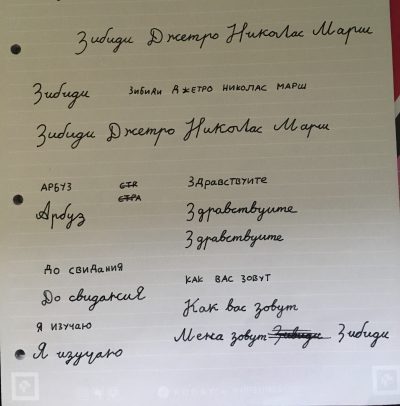 Зибиди Джетро Николас Марш
Зибиди ЗИБИДИ ДЖЕТРО НИКОЛАС МАРШ
Зибиди Джетро Николас Марш
АРБУЗ
Арбуз
ЗДРАВСТВУИТЕ
Здравствуите
Здравствуите
ДО СВИДАНИЯ
До свидания
Я ИЗУЧАЮ
Я изучаю
КАК ВАС ЗОВУТ
Как вас зовут
Мена зовут Зибиди Зибиди